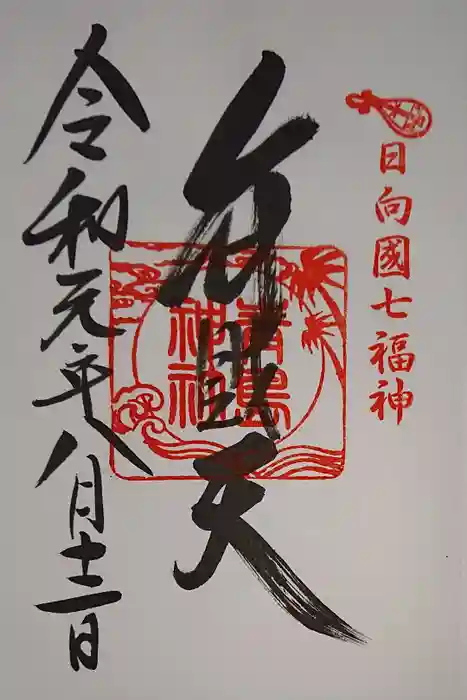 日向國七福神
弁財天
青島
神社
令和元年八月十二日